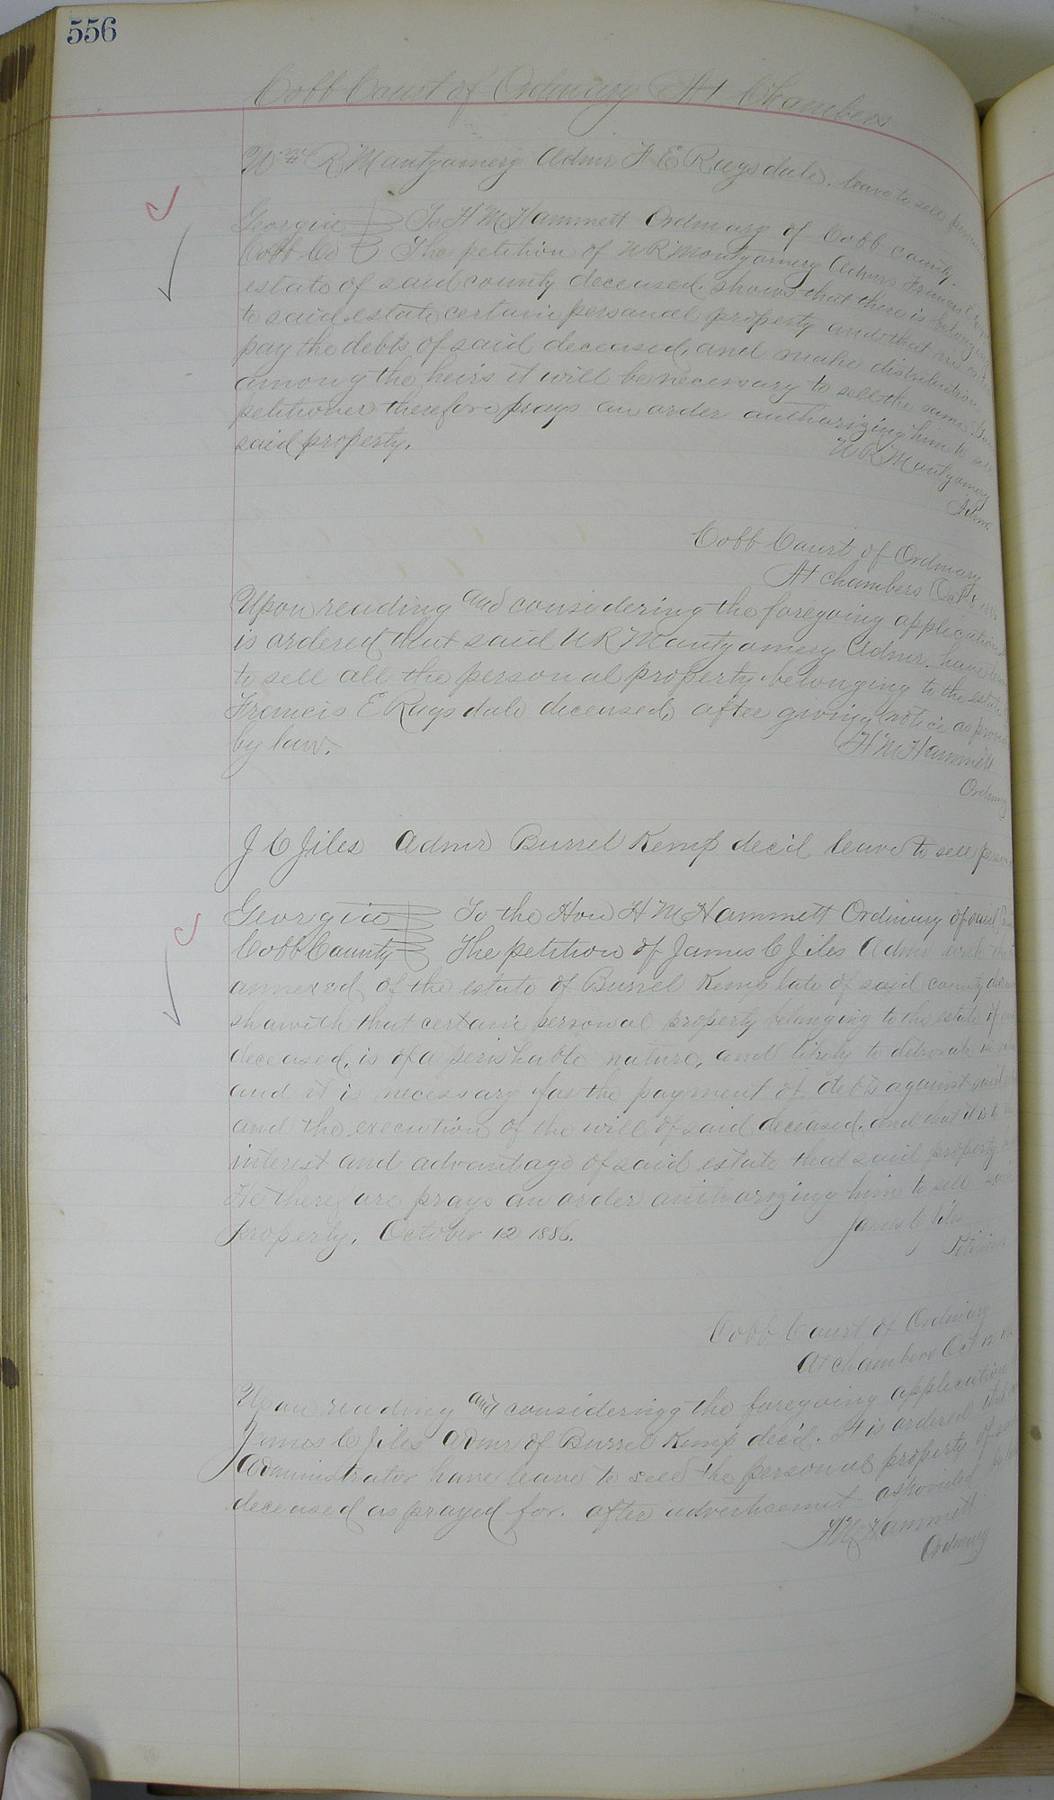 556
Cobb Court of Ordinary At Chambers
Wm R Montgomery Admr F E Ragsdale. leave to sell
Georgia To H M Hammett Ordinary of Cobb county.
Cobb Co The petition of W R Montgomery Admr Francis E
estate of said county deceased, shows that there is belonging
to said estate certain personal property and that in order
pay the debts of said deceased, and make distribution
among the heirs it will be necessary to sell the same.
petitioner therefore prays an order authorizing him to sell
said property.
W R Montgomery
Admr
Cobb Court of Ordinary
At chambers Oct
Upon reading and considering the foregoing application
is ordered that said W R Montgomery Admr. have leave
to sell all the personal property belonging to the estate
Francis E Ragsdale deceased, after giving notice as
by law.
H M Hammett
Ordinary
J C Jiles Admr Burrel Kemp dec'd leave to sell
Georgia To the Hon H M Hammett Ordinary of said
Cobb County The petition of James C Jiles Admr with
annexed, of the estate of Burrel Kemp late of said county
shewith that certain personal property belonging to the estate of
deceased, is of a perishable nature, and likely to
and it is necessary for the payment of debts against said
and the execution of the will of said deceased. and that it is to
interest and advantage of said estate that said property
He therefore prays an order authorizing him to sell said
property. October 12 1886.
James C Jiles
Cobb Court of Ordinary
At chambers Oct 12
Upon reading and considerinng the foregoing application
James C Jiles Admr of Burrel Kemp dec'd. It is ordered that
Administrator have leave to sell the personal property of
deceased as prayed for. after advertisement as provided by
H M Hammett
Ordinary